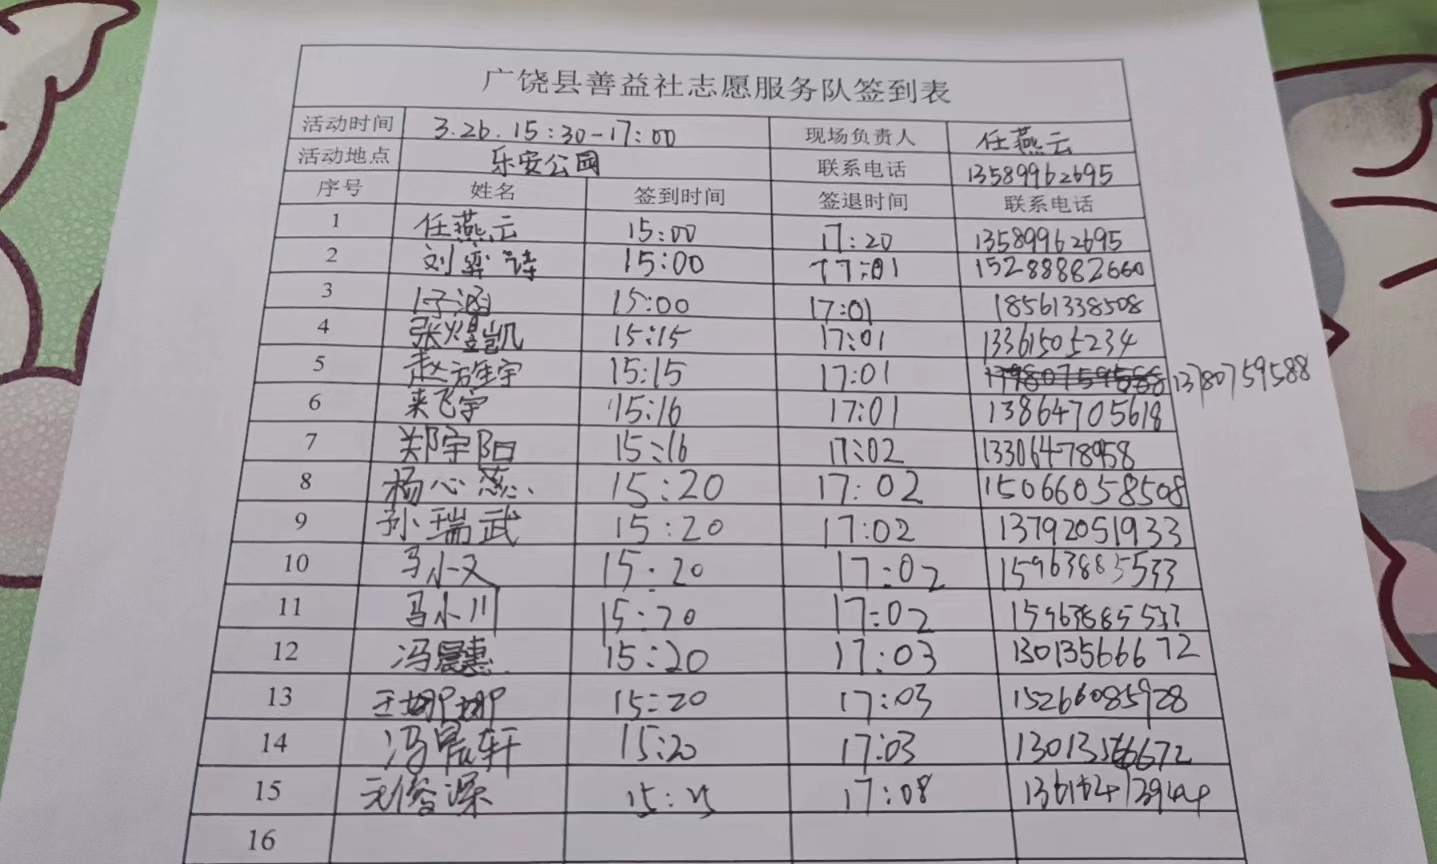 广饶县善益社志愿服务队签到表
活动时间 3.26. 15:30-17:00 现场负责人 任燕云
活动地点 乐安公园 联系电话 13589962695
序号 姓名 签到时间 签退时间 联系电话
1 任燕云 15:00 17:20 13589962695
2 刘弈诗 15:00 17:01 15288882660
3 15:00 17:01 18561338508
4 张煜凯 15:15 17:01 13361505234
5 赵 宇 15:15 17:01 13780759588
6 来飞宇 15:16 17:01 13864705618
7 郑宇阳 15:16 17:02 13306478958
8 杨心蕊 15:20 17:02 15066058508
9 孙瑞武 15:20 17:02 13792051933
10 马小又 15:20 17:02 15963885533
11 马小川 15:20 17:02 15963885533
12 冯晨惠 15:20 17:03 13013566672
13 王娜娜 15:20 17:03 15266085928
14 冯晨轩 15:20 17:03 13013566672
15 15:25 17:08
16